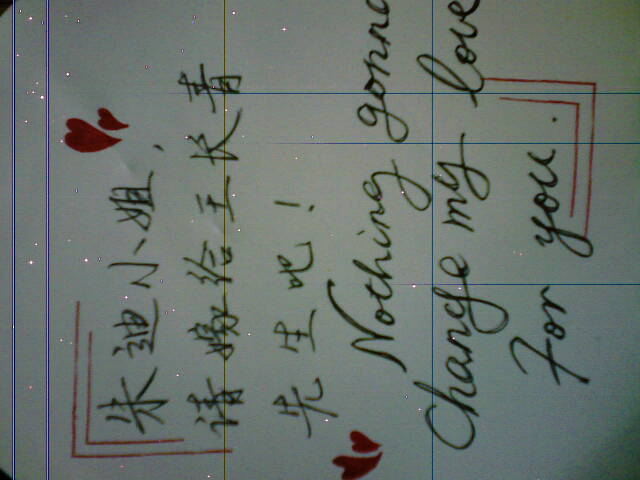 朱迪小姐,
请嫁给王长青
先生吧!
Nothing gonna
Change my love
For you.